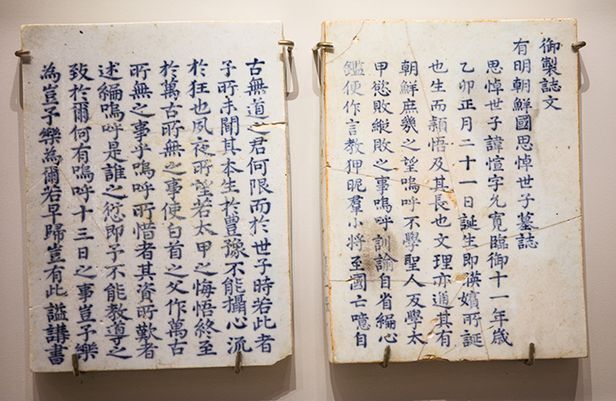 御製誌文
有明朝鮮國思悼世子墓誌
思悼世子諱愃字允寬臨御十一年歲
乙卯正月二十一日誕生即暎嬪所誕
也生而穎悟及其長也文理亦通其有
朝鮮庶幾之望嗚呼不學聖人反學太
甲慾敗縱敗之事嗚呼訓諭自省編心
鑑便作言教狎昵羣小將至國亡噫自
古無道之君何限而於世子時若此者
予所未聞其本生於豊豫不能攝心流
於狂也夙夜所望若太甲之悔悟終至
於萬古所無之事使白首之父作萬古
所無之事乎嗚呼所惜者其資所歎者
述編嗚呼是誰之愆即予不能教導之
致於爾何有嗚呼十三日之事豈予樂
為豈予樂為爾若早歸豈有此諡講書